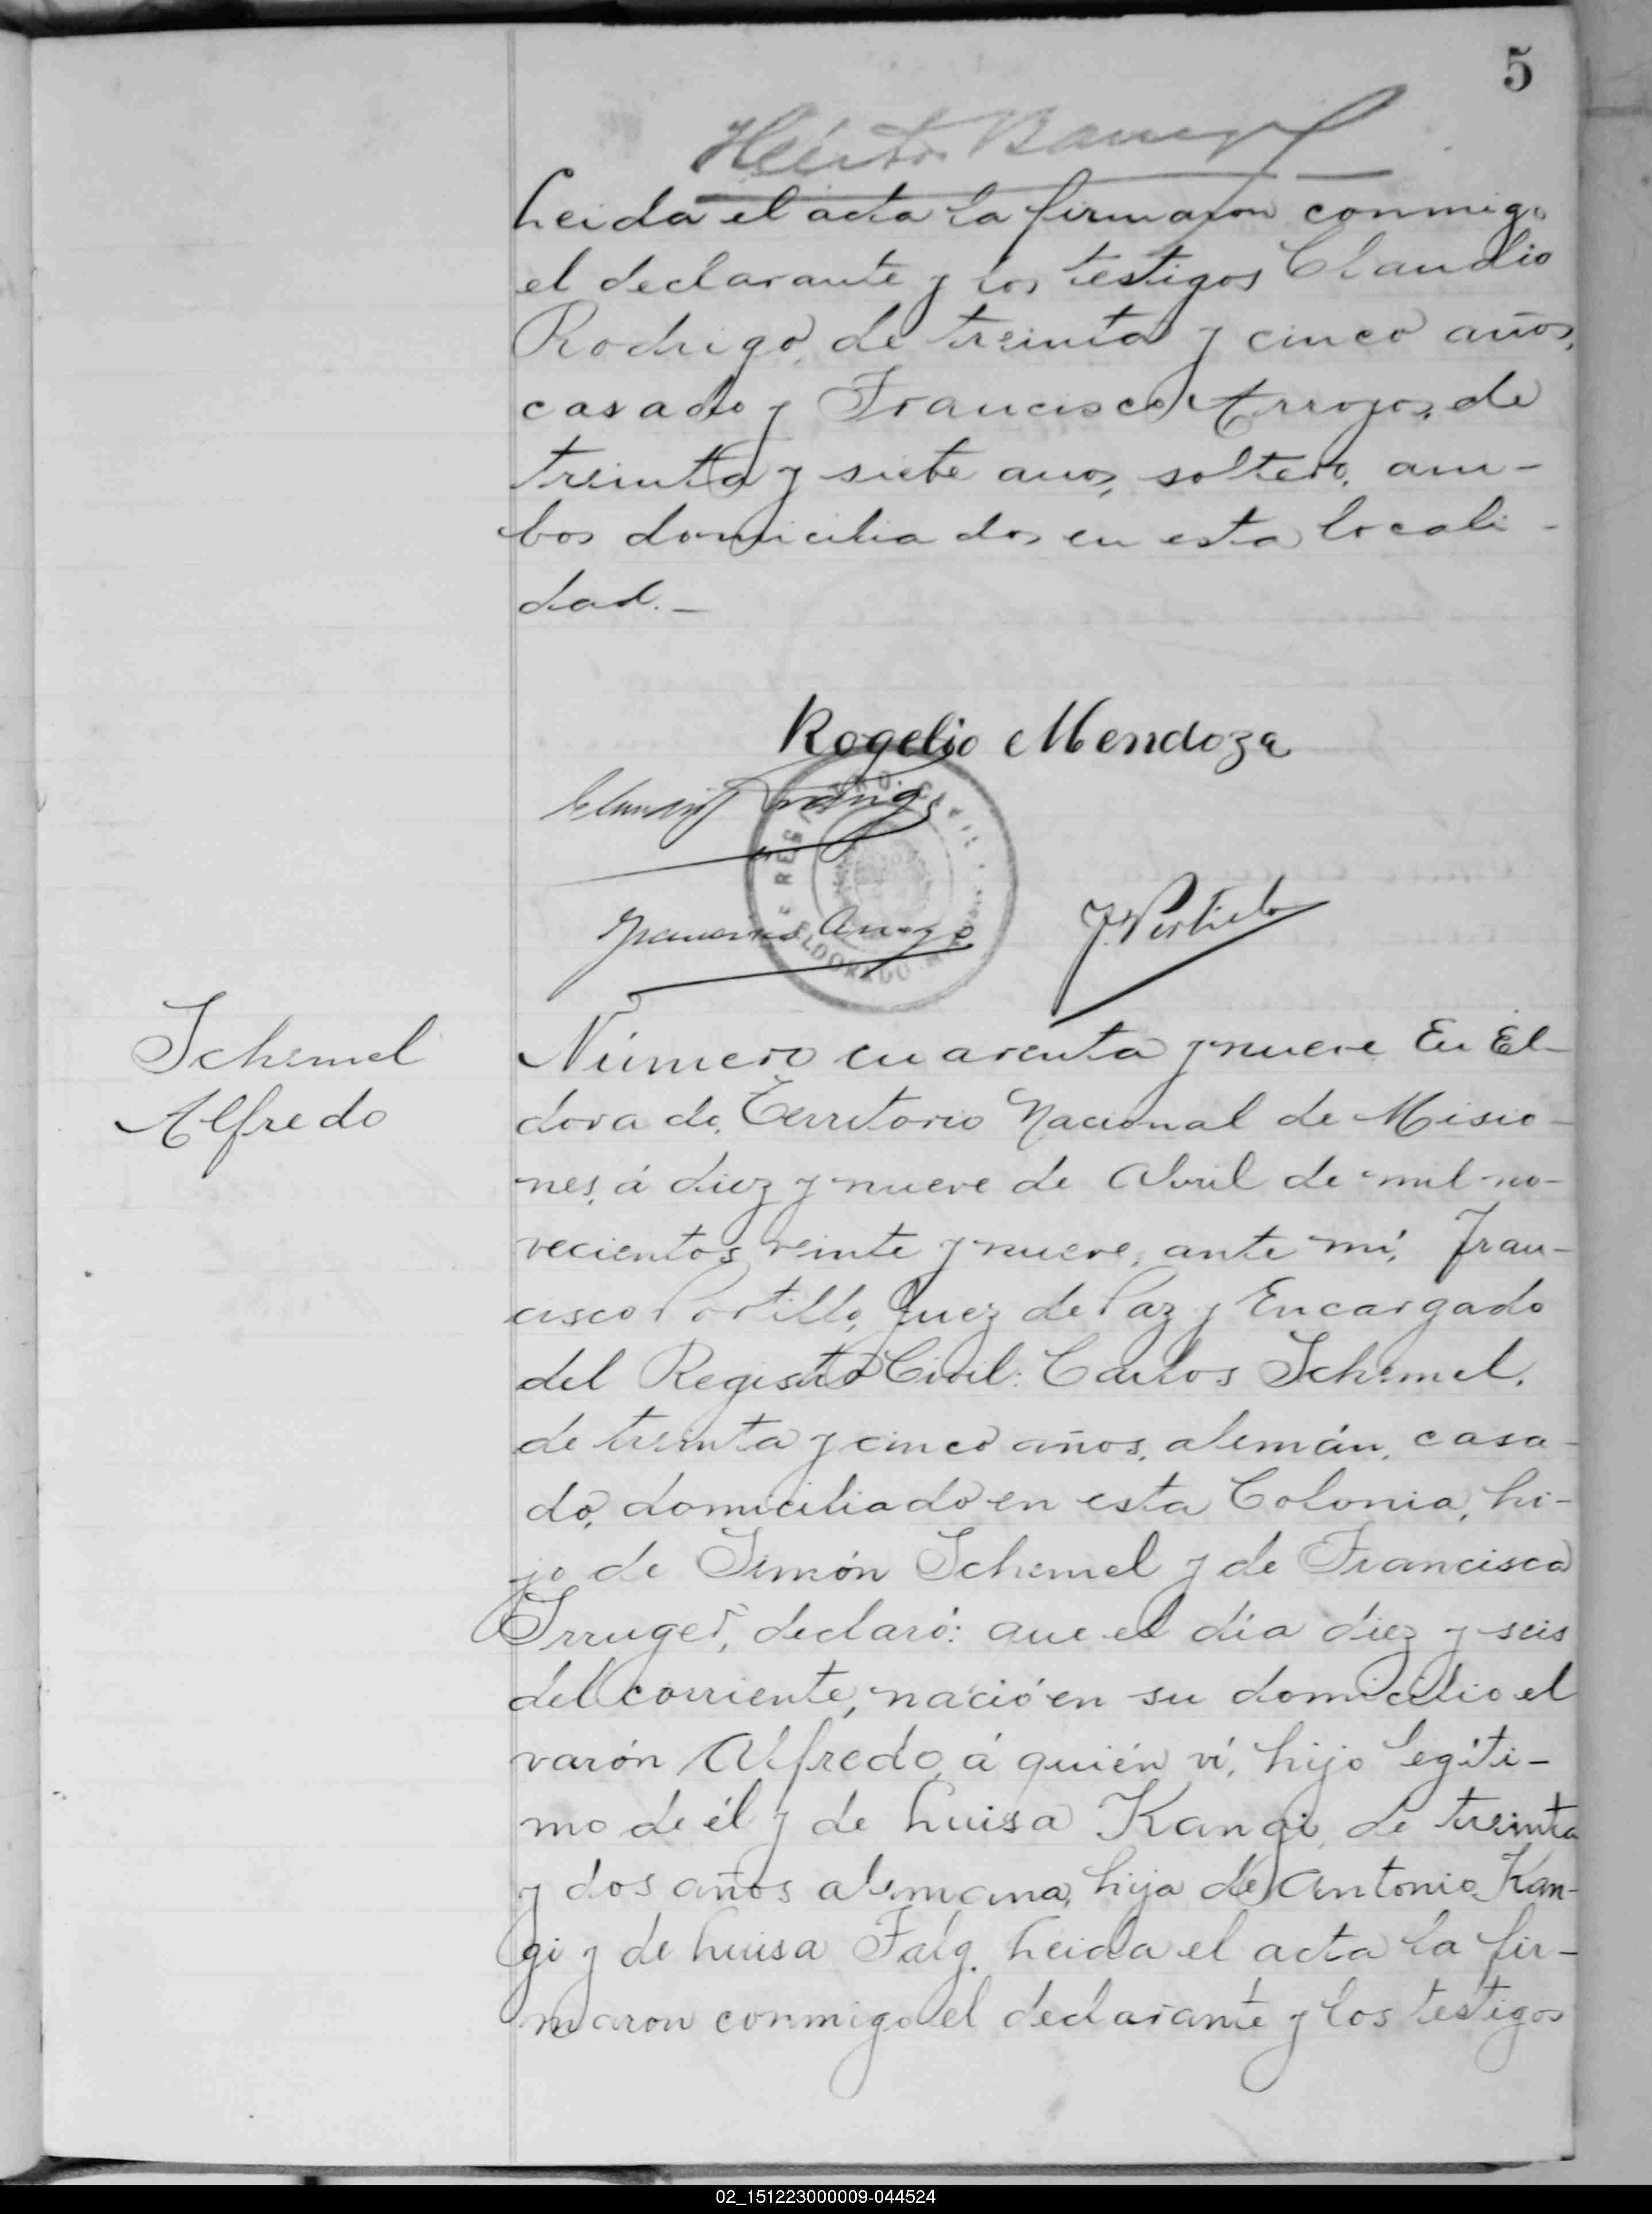 5
Leida el acta la firmaron conmigo
el declarante y los testigos Claudio
Rodrigo, de treinta y cinco años,
casado y Francisco Arroyo, de
treinta y siete años, soltero, am-
bos domiciliados en esta locali-
dad.-
Rogelio Mendoza
REGISTRO CIVIL
ELDORADO
Francisco Arroyo
F. Portillo
Schemel
Alfredo
Número cuarenta y nueve En El-
dorado, Territorio Nacional de Misio-
nes, á diez y nueve de Abril de mil no-
vecientos veinte y nueve, ante mí, Fran-
cisco Portillo, Juez de Paz y Encargado
del Registro Civil: Carlos Schemel,
de treinta y cinco años, alemán, casa-
do, domiciliado en esta Colonia, hi-
jo de Simón Schemel y de Francisca
declaró: que el día diez y seis
del corriente, nació en su domicilio el
varón Alfredo, á quién ví, hijo legíti-
mo de él y de Luisa Kangi, de treinta
y dos años alemana, hija de Antonio Kan-
gi y de Luisa Falg. Leida el acta la fir-
maron conmigo el declarante y los testigos
02_151223000009-044524